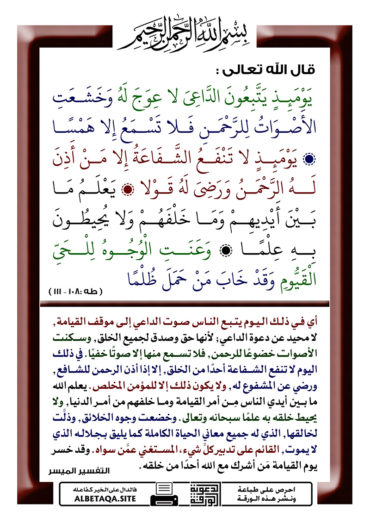 بِسْمِ اللَّهِ الرَّحْمَٰنِ الرَّحِيمِ
قال الله تعالى :
يَوْمَئِذٍ يَتَّبِعُونَ الدَّاعِىَ لا عِوَجَ لَهُ وَخَشَعَتِ
الأَصْوَاتُ لِلرَّحْمَـنِ فَـلا تَسْـمَعُ إِلا هَمْسًـا
۞ يَوْمَئِـذٍ لا تَنْفَـعُ الشَّـفَاعَةُ إِلا مَـنْ أَذِنَ
لَـهُ الرَّحْمَـنُ وَرَضِىَ لَهُ قَـوْلا ۞ يَعْلَـمُ مَـا
بَـيْنَ أَيْدِيهِـمْ وَمَـا خَلْفَهُـمْ وَلا يُحِيطُـونَ
بِـهِ عِلْمًـا ۞ وَعَنَـتِ الْوُجُـوهُ لِلْـحَىِّ
الْقَيُّومِ وَقَدْ خَابَ مَنْ حَمَلَ ظُلْمًا
( طه :١٠٨ - ١١١ )
أي في ذلك اليوم يتبع الناس صوت الداعي إلى موقف القيامة ,
لا محيد عن دعوة الداعي; لأنها حق وصدق لجميع الخلق, وسـكنت
الأصوات خضوعًا للرحمن, فلا تسـمع منها إلا صوتًا خفيًا. في ذلك
اليوم لا تنفع الشـفاعة أحدًا من الخلق, إلا إذا أذن الرحمن للشـافع ,
ورضي عن المشفوع له , ولا يكون ذلك إلا للمؤمن المخلص. يعلم الله
ما بـين أيدي الناس مِـن أمر القيامة ومـا خلفهم من أمـر الدنيا, ولا
يحيط خلقه به علمًا سبحانه وتعالى. وخضعت وجوه الخلائق , وذلَّت
لخالقها, الذي له جميع معاني الحياة الكاملة كما يليق بجلالـه الذي
لا يموت, القائم على تدبير كلِّ شيء، المسـتغني عمَّن سواه. وقد خسر
يوم القيامة مَن أشرك مع الله أحدًا من خلقه.
التفسير الميسر
احرص على طباعة
ونشر هـذه الورقة
الدعوية
الورقة
فالدال على الخير كفاعله
ALBETAQA.SITE